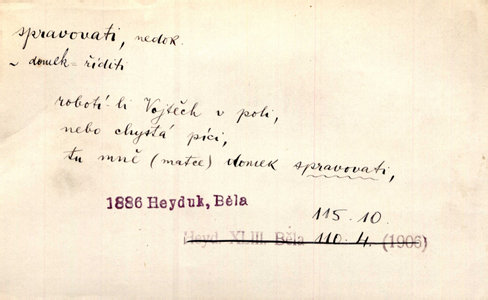 spravovati, nedok.
~ domek = říditi
robotí-li Vojtěch v poli,
nebo chystá píci,
tu mně (matce) domek spravovati,
1886 Heyduk, Běla
115.10.
Heyd. XLIII. Běla 110.4. (1906)